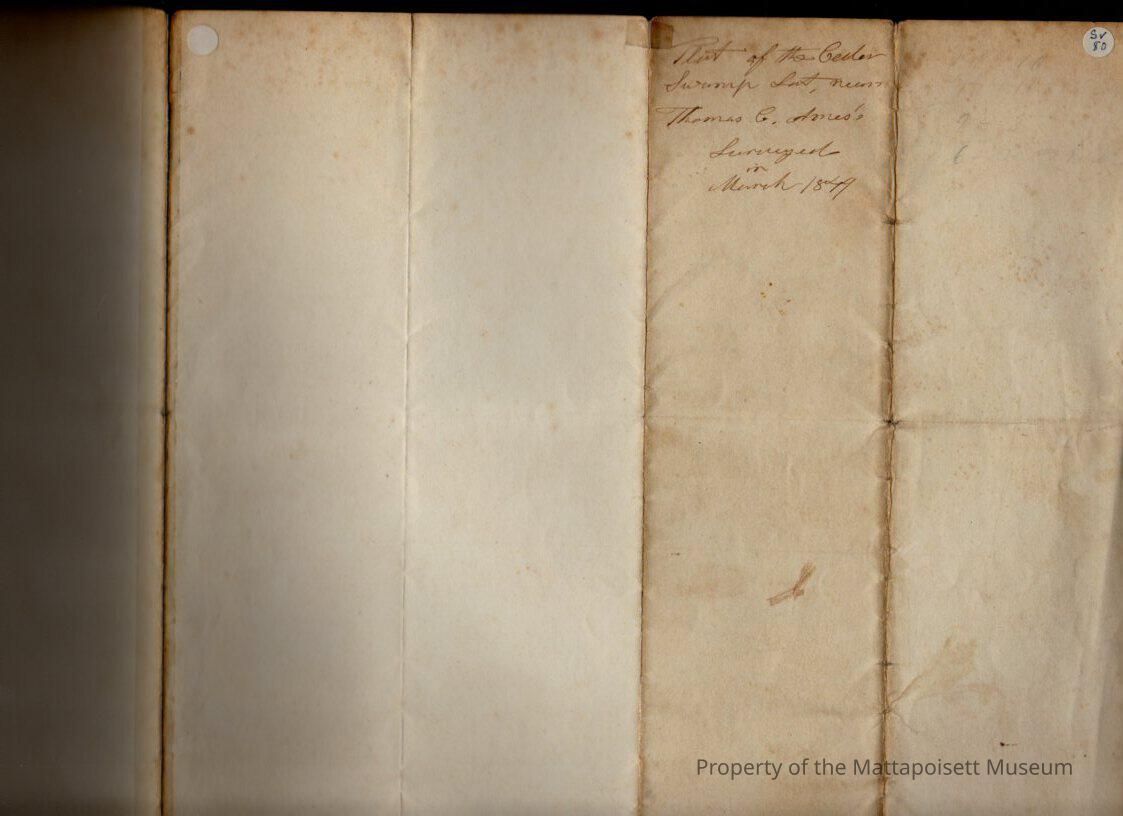 Plat of the Cedar
Swamp Lot, near
Thomas C. Ames's
Surveyed
in
March 1849
Sv
80
Property of the Mattapoisett Museum